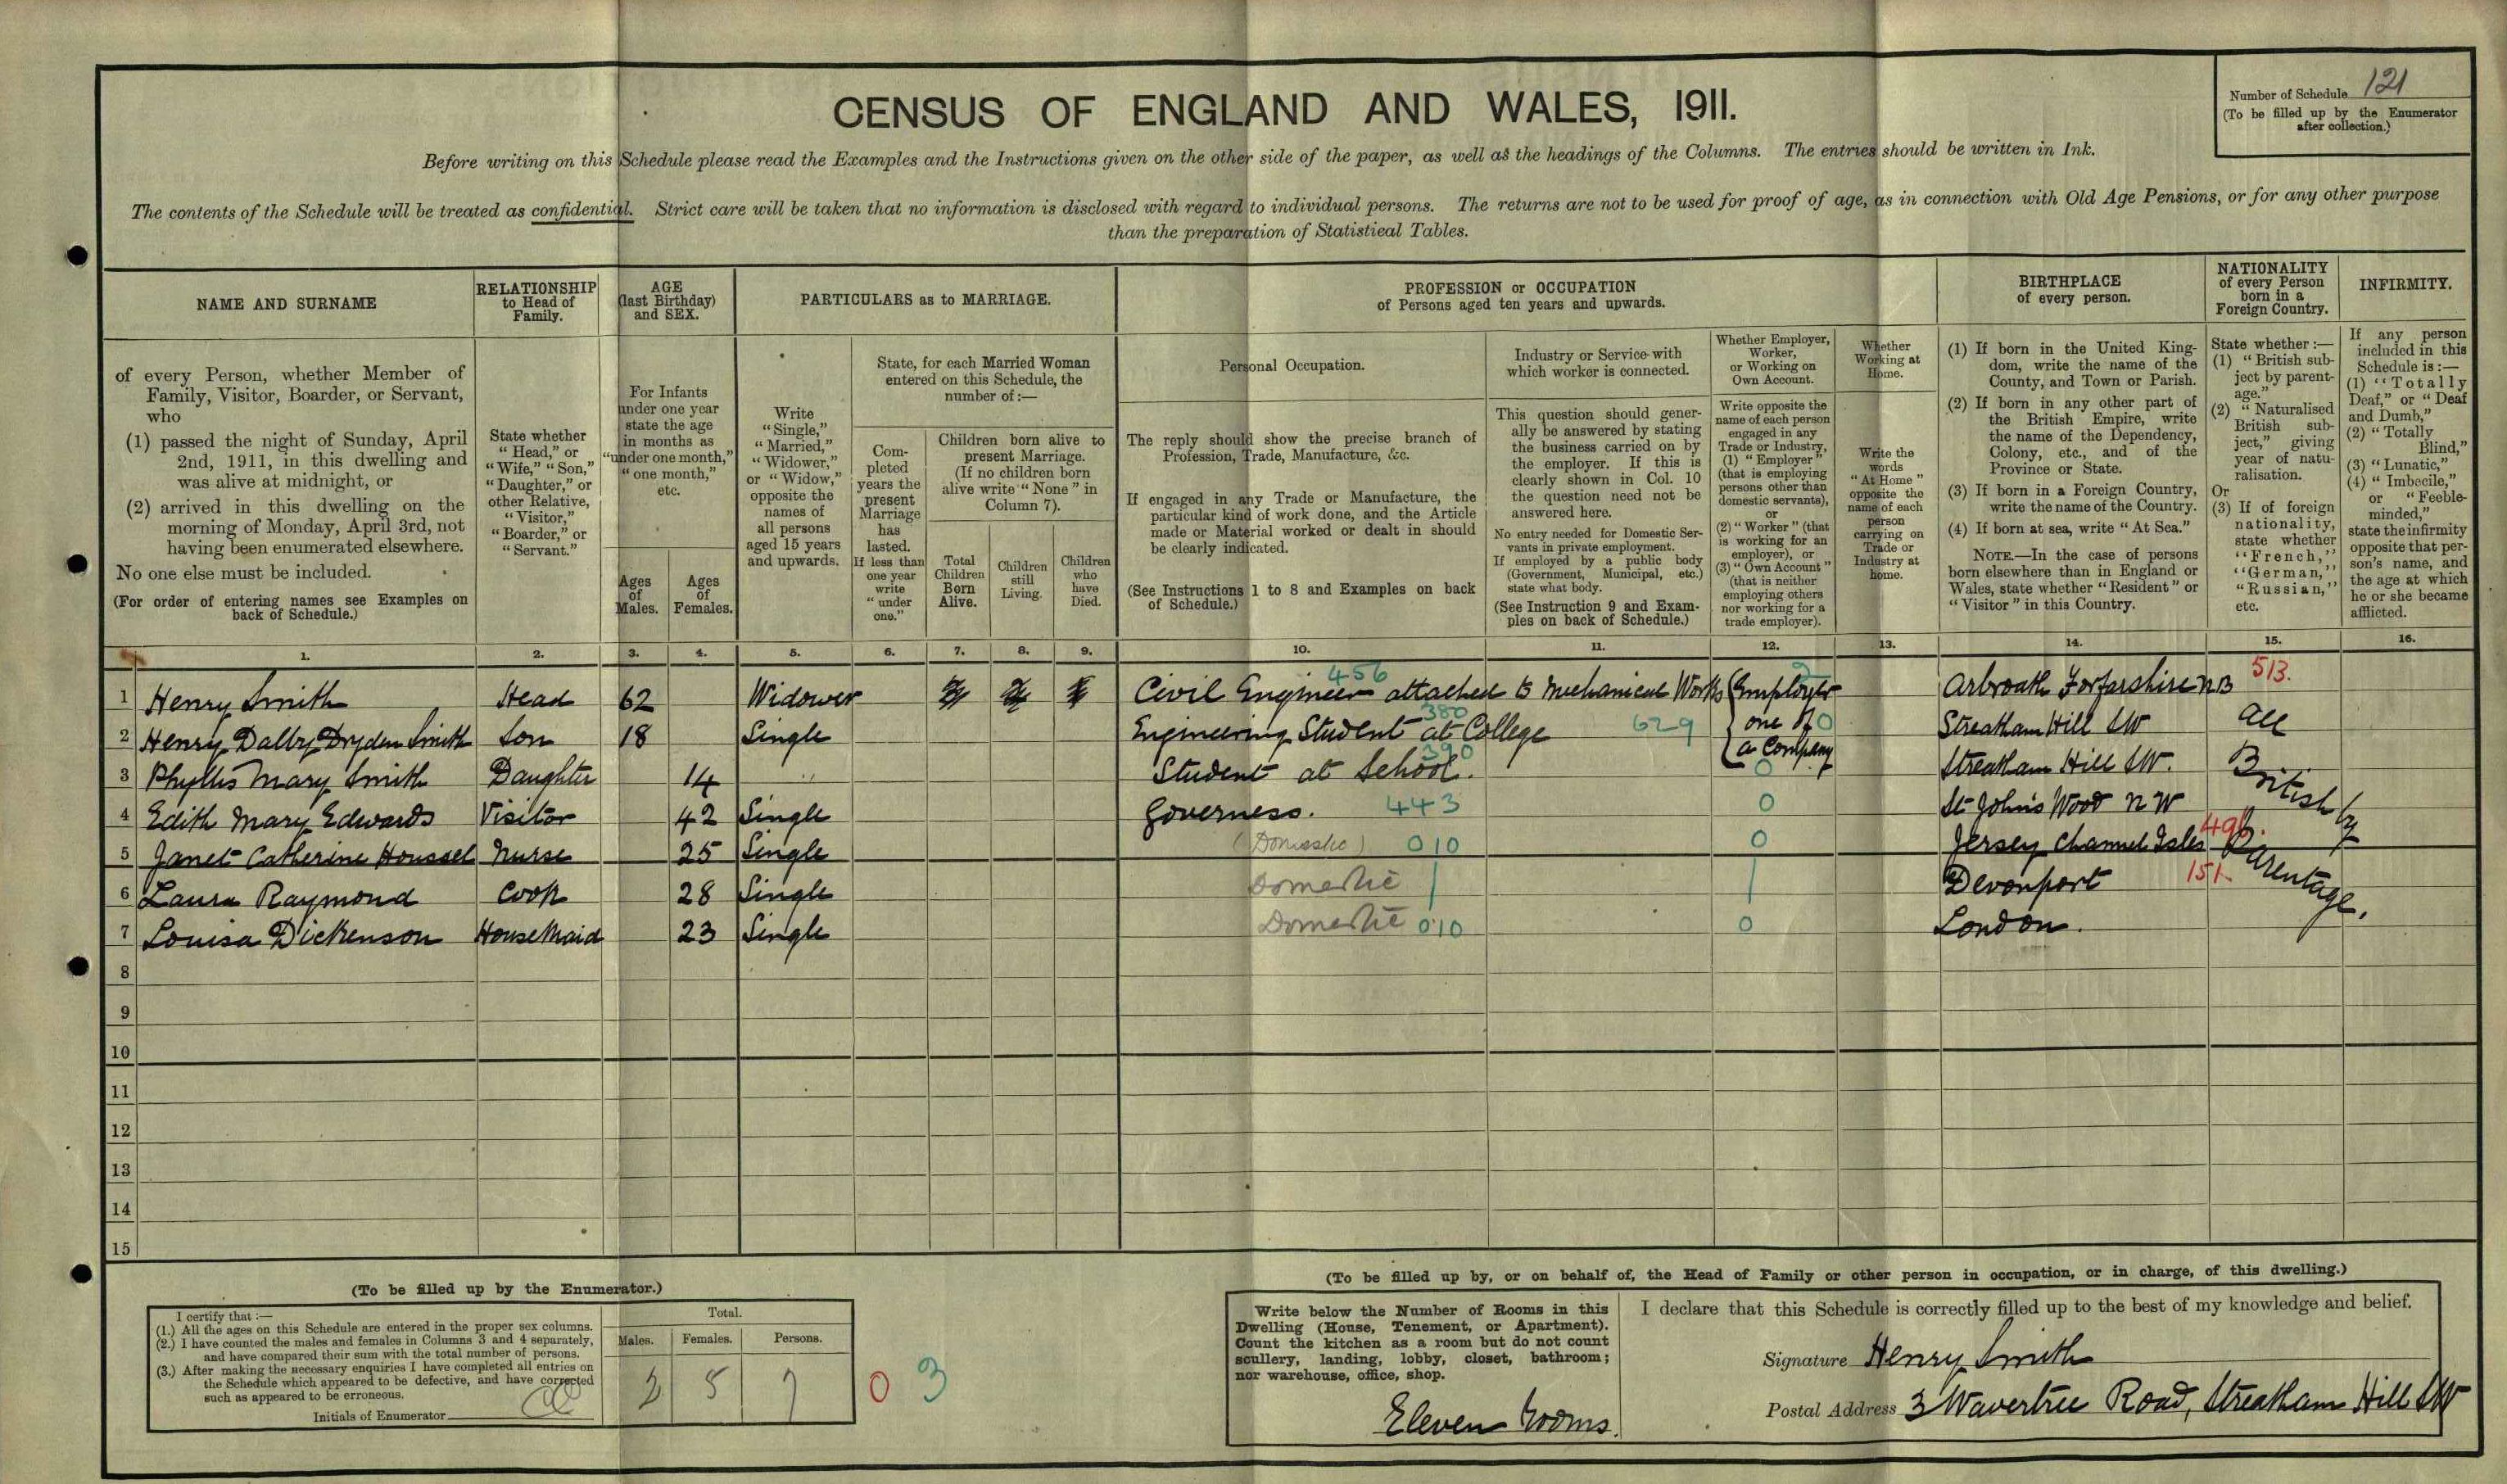 CENSUS OF ENGLAND AND WALES, 1911.
Number of Schedule 121
(To be filled up by the Enumerator
after collection.)
Before writing on this Schedule please read the Examples and the Instructions given on the other side of the paper, as well as the headings of the Columns. The entries should be written in Ink.
The contents of the Schedule will be treated as confidential. Strict care will be taken that no information is disclosed with regard to individual persons. The returns are not to be used for proof of age, as in connection with Old Age Pensions, or for any other purpose
than the preparation of Statistical Tables.
NAME AND SURNAME
of every Person, whether Member of
Family, Visitor, Boarder, or Servant,
who
(1) passed the night of Sunday, April
2nd, 1911, in this dwelling and
was alive at midnight, or
(2) arrived in this dwelling on the
morning of Monday, April 3rd, not
having been enumerated elsewhere.
No one else must be included.
(For order of entering names see Examples on
back of Schedule.)
RELATIONSHIP
to Head of
Family.
State whether
"Head," or
"Wife," "Son,"
"Daughter," or
other Relative,
"Visitor,"
"Boarder," or
"Servant."
AGE
(last Birthday)
and SEX.
For Infants
under one year
state the age
in months as
"under one month,"
"one month,"
etc.
Ages
of
Males.
Ages
of
Females.
PARTICULARS as to MARRIAGE.
Write
"Single,"
"Married,"
"Widower,"
or "Widow,"
opposite the
names of
all persons
aged 15 years
and upwards.
State, for each Married Woman
entered on this Schedule, the
number of:—
Com-
pleted
years the
present
Marriage
has
lasted.
If less than
one year
write
"under
one."
Children born alive to
present Marriage.
(If no children born
alive write "None" in
Column 7).
Total
Children
Born
Alive.
Children
still
Living.
Children
who
have
Died.
PROFESSION or OCCUPATION
of Persons aged ten years and upwards.
Personal Occupation.
The reply should show the precise branch of
Profession, Trade, Manufacture, &c.
If engaged in any Trade or Manufacture, the
particular kind of work done, and the Article
made or Material worked or dealt in should
be clearly indicated.
(See Instructions 1 to 8 and Examples on back
of Schedule.)
Industry or Service with
which worker is connected.
This question should gener-
ally be answered by stating
the business carried on by
the employer. If this is
clearly shown in Col. 10
the question need not be
answered here.
No entry needed for Domestic Ser-
vants in private employment.
If employed by a public body
(Government, Municipal, etc.)
state what body.
(See Instruction 9 and Exam-
ples on back of Schedule.)
Whether Employer,
Worker,
or Working on
Own Account.
Write opposite the
name of each person
engaged in any
Trade or Industry,
(1) "Employer"
(that is employing
persons other than
domestic servants),
or
(2) "Worker" (that
is working for an
employer), or
(3) "Own Account"
(that is neither
employing others
nor working for a
trade employer).
Whether
Working at
Home.
Write the
words
"At Home"
opposite the
name of each
person
carrying on
Trade or
Industry at
home.
BIRTHPLACE
of every person.
(1) If born in the United King-
dom, write the name of the
County, and Town or Parish.
(2) If born in any other part of
the British Empire, write
the name of the Dependency,
Colony, etc., and of the
Province or State.
(3) If born in a Foreign Country,
write the name of the Country.
(4) If born at sea, write "At Sea."
NOTE.—In the case of persons
born elsewhere than in England or
Wales, state whether "Resident" or
"Visitor" in this Country.
NATIONALITY
of every Person
born in a
Foreign Country.
State whether:—
(1) "British sub-
ject by parent-
age."
(2) "Naturalised
British sub-
ject," giving
year of natu-
ralisation.
Or
(3) If of foreign
nationality,
state whether
"French,"
"German,"
"Russian,"
etc.
INFIRMITY.
If any person
included in this
Schedule is:—
(1) "Totally
Deaf," or "Deaf
and Dumb,"
(2) "Totally
Blind,"
(3) "Lunatic,"
(4) "Imbecile,"
or "Feeble-
minded,"
state the infirmity
opposite that per-
son's name, and
the age at which
he or she became
afflicted.
1. 2. 3. 4. 5. 6. 7. 8. 9. 10. 11. 12. 13. 14. 15. 16.
456 2 513.
1 Henry Smith Head 62 Widower Civil Engineer attached to Mechanical Works (Employer Arbroath Forfarshire NB
380
2 Henry Dalby Dryden Smith Son 18 Single Engineering Student at College 629 one of 0 Streatham Hill SW all
390 a Company
3 Phyllis Mary Smith Daughter 14 " Student at School. 0 Streatham Hill SW. British by
4 Edith Mary Edwards Visitor 42 Single Governess. 443 0 St John's Wood NW
5 Janet Catherine Houssel Nurse 25 Single (Domestic) 010 0 Jersey Channel Isles 496. Parentage.
6 Laura Raymond Cook 28 Single Domestic | | Devonport 151.
7 Louisa Dickenson HouseMaid 23 Single Domestic 010 0 London.
8
9
10
11
12
13
14
15
(To be filled up by the Enumerator.)
I certify that:—
(1.) All the ages on this Schedule are entered in the proper sex columns.
(2.) I have counted the males and females in Columns 3 and 4 separately,
and have compared their sum with the total number of persons.
(3.) After making the necessary enquiries I have completed all entries on
the Schedule which appeared to be defective, and have corrected
such as appeared to be erroneous.
Initials of Enumerator
Total.
Males. Females. Persons.
2 5 7 0 3
(To be filled up by, or on behalf of, the Head of Family or other person in occupation, or in charge, of this dwelling.)
Write below the Number of Rooms in this
Dwelling (House, Tenement, or Apartment).
Count the kitchen as a room but do not count
scullery, landing, lobby, closet, bathroom;
nor warehouse, office, shop.
Eleven Rooms.
I declare that this Schedule is correctly filled up to the best of my knowledge and belief.
Signature Henry Smith
Postal Address 3 Wavertree Road, Streatham Hill SW